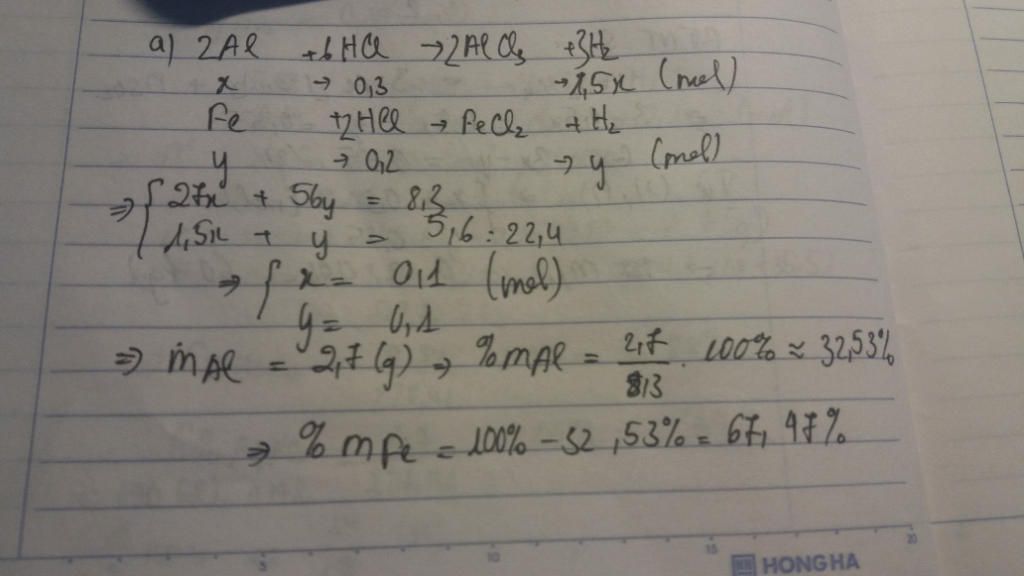 a) 2Al +6HCl →2AlCl₃ +3H₂
x → 0,3 →1,5x (mol)
Fe +2HCl → FeCl₂ + H₂
y → 0,2 → y (mol)
⇒ { 27x + 56y = 8,3
1,5x + y = 5,6 : 22,4
⇒ { x = 0,1 (mol)
y = 0,1
⇒ mAl = 2,7 (g) → %mAl = 2,7/8,3 . 100% ≈ 32,53%
⇒ %mFe = 100% - 32,53% = 67,47%
5 10 15 20
HONG HA